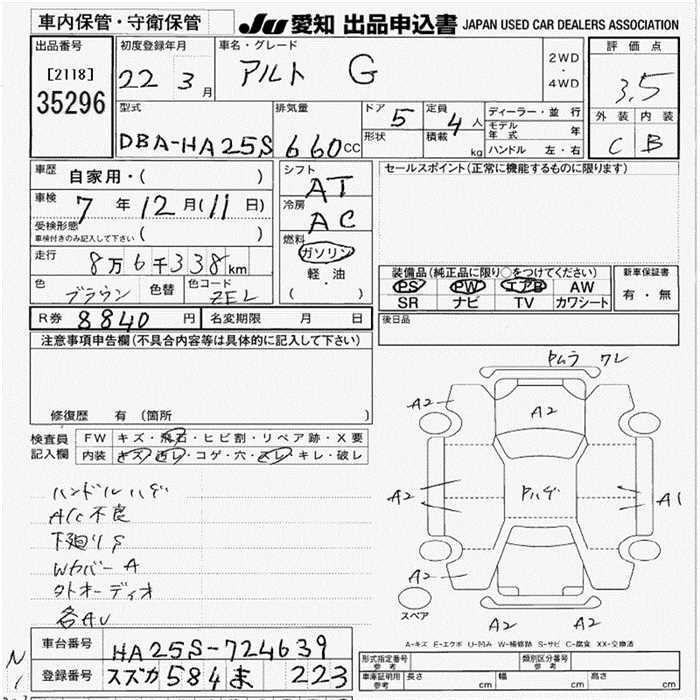 車内保管・守衛保管
JU 愛知 出品申込書 JAPAN USED CAR DEALERS ASSOCIATION
出品番号
[2118]
35296
初度登録年月
22 3月
車名・グレード
アルト G
2WD
・
4WD
評価点
3.5
外装 内装
C B
型式
DBA-HA25S
排気量
660cc
ドア 5
形状
定員 4人
積載 kg
ディーラー・並行
モデル年式 年
ハンドル 左・右
車歴 自家用・( )
車検 7年12月(11日)
受検形態
車検付きのみ記入して下さい ( )
走行
8万6千338km
色 ブラウン 色替 色コード ZEL
シフト
AT
冷房
AC
燃料
ガソリン
軽・油
( )
セールスポイント(正常に機能するものに限ります)
装備品(純正品に限り○をつけてください)
PS PW エアB AW
SR ナビ TV カワシート
新車保証書
有・無
R券 8840円 名変期限 月 日
後日品
注意事項申告欄(不具合内容等は具体的に記入して下さい)
修復歴 有(箇所 )
検査員
記入欄
FW キズ・飛石・ヒビ割・リペア跡・X要
内装 キズ・汚レ・コゲ・穴・スレ・キレ・破レ
ハンドルハゲ
A/C不良
下廻りS
WカバーA
外オーディオ
各AU
トムラ ワレ
A2
A2
A2
トハゲ
A1
A2
A2
A2
スペア
A-キズ E-エクボ U-凹み W-補修跡 S-サビ C-腐食 XX-交換済
車台番号 HA25S-724639
登録番号 スズカ 584 ま 223
形式指定番号
参考
類別区分番号
参考
車庫証明用
参考
長さ cm 幅 cm 高さ cm